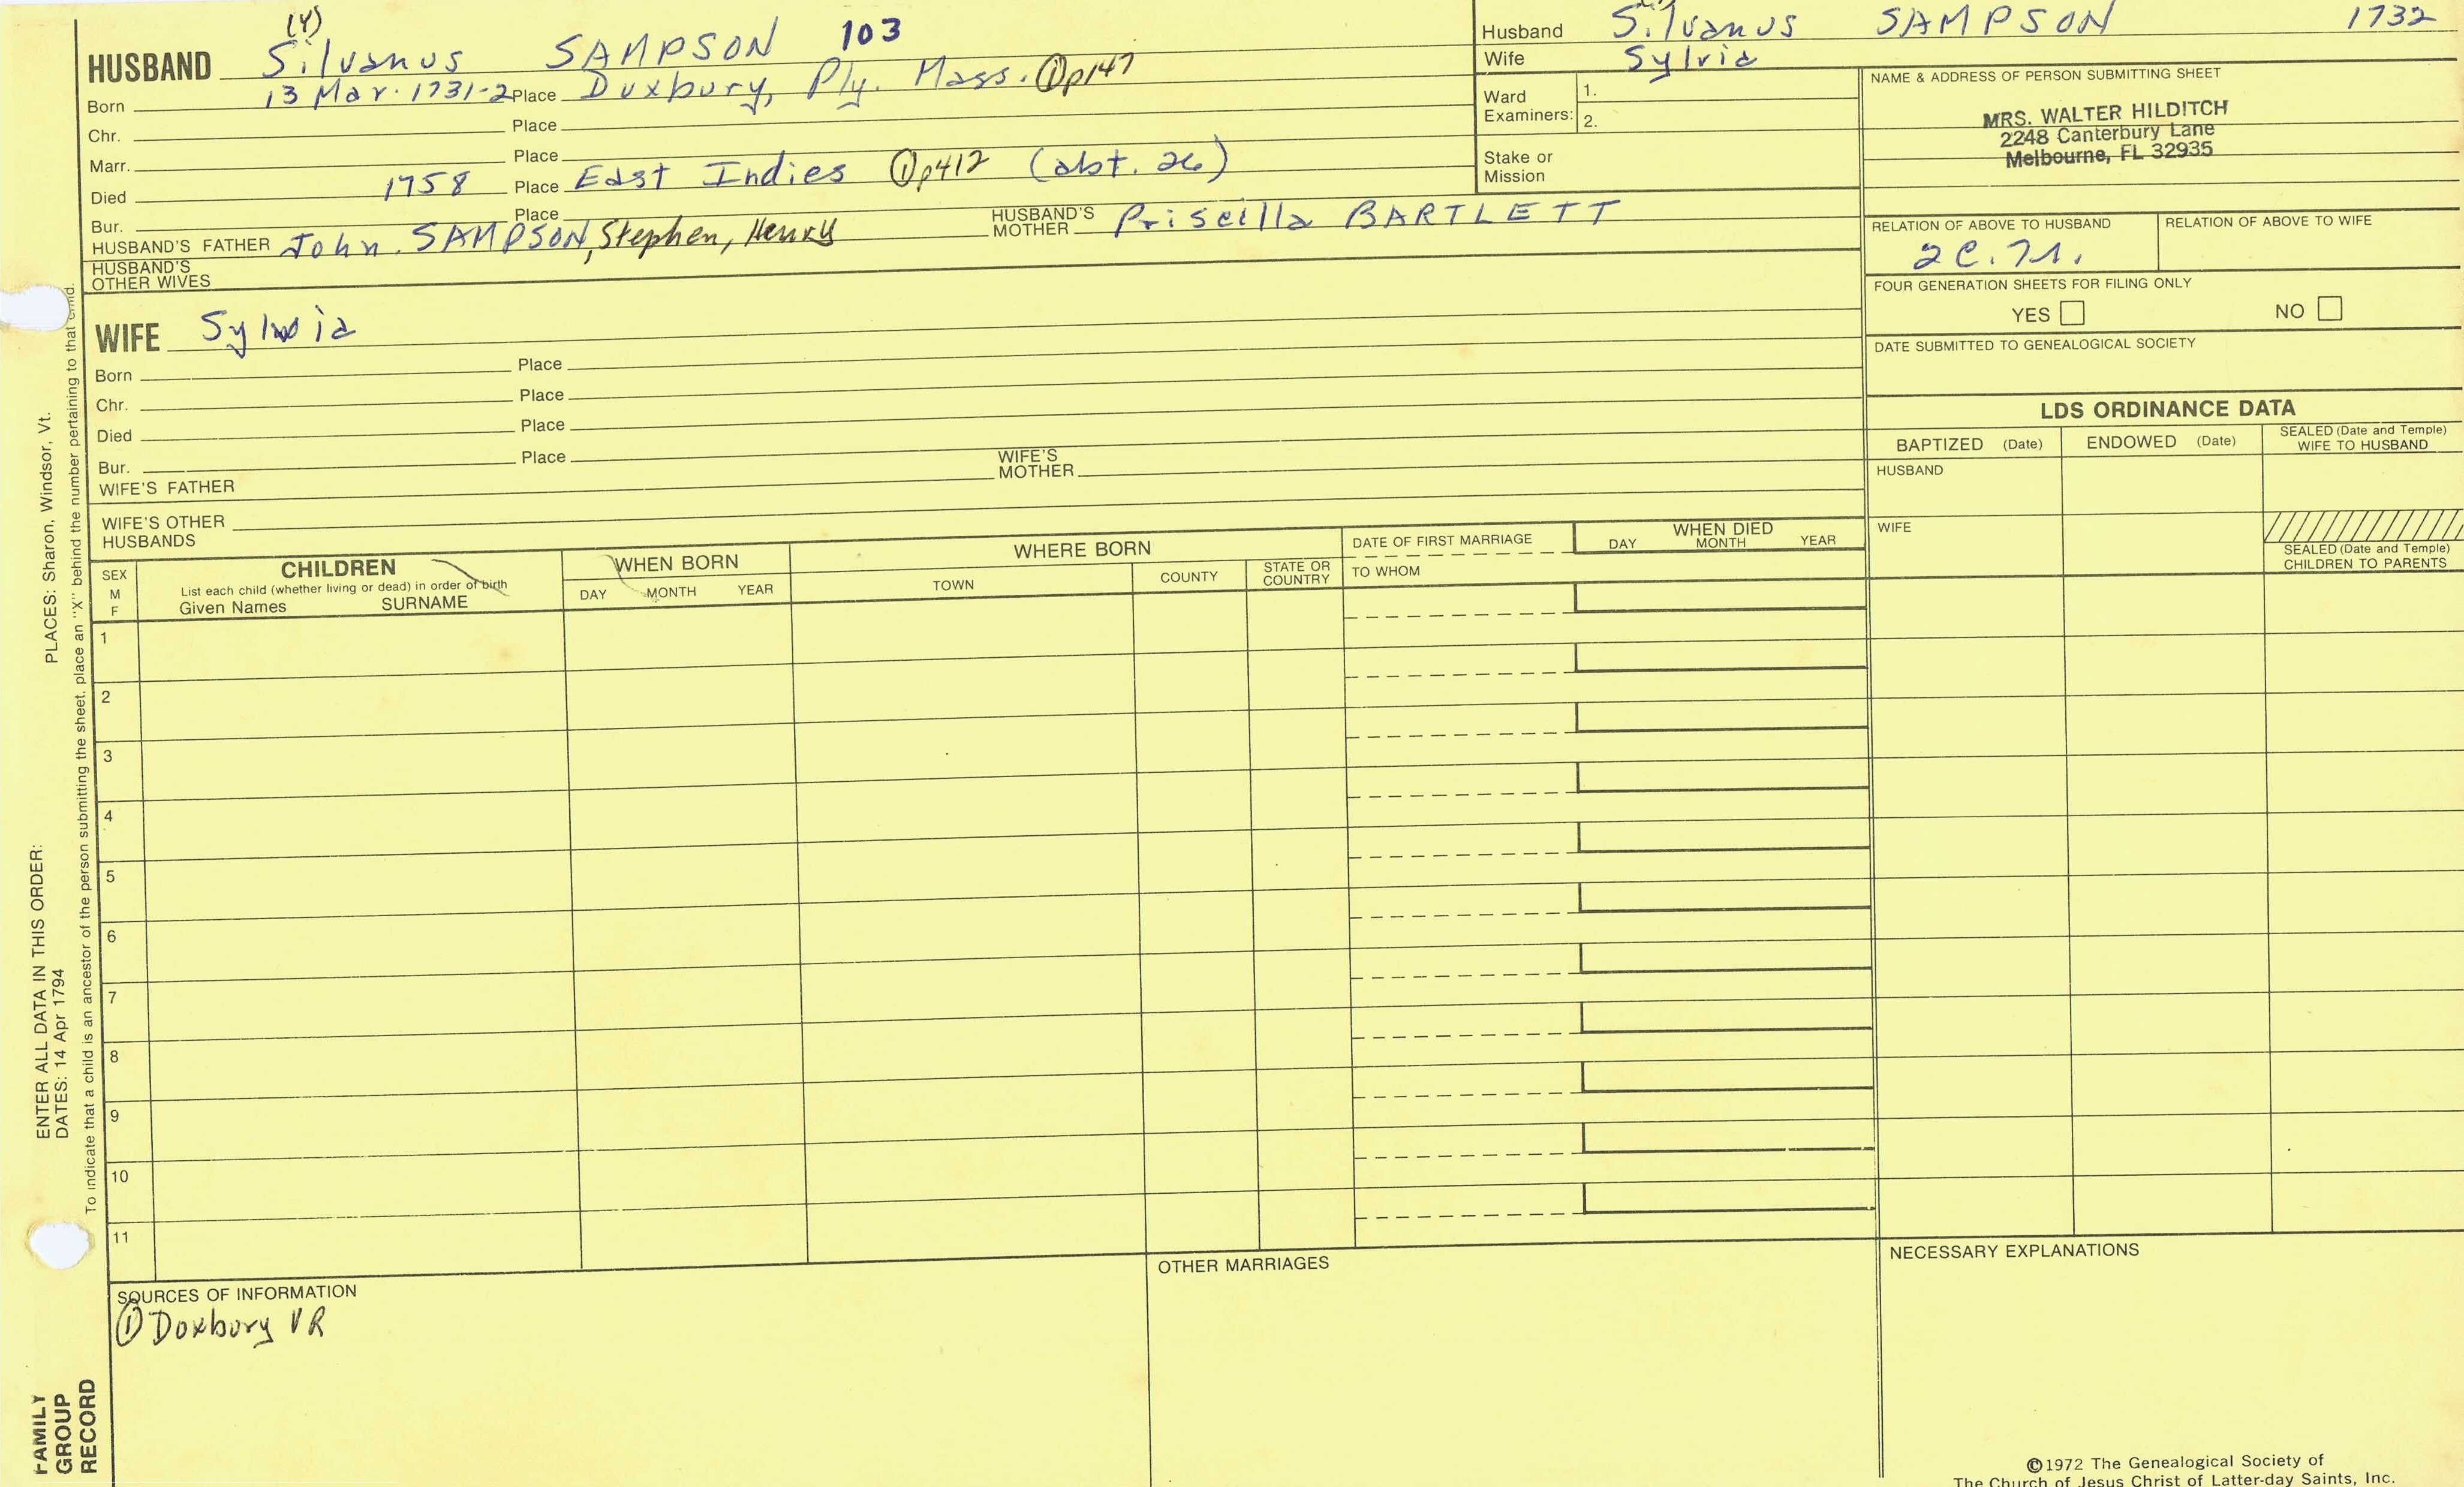 (4)
HUSBAND Silvanus SAMPSON 103
Born 13 Mar. 1731-2 Place Duxbury, Ply. Mass. ① p147
Chr. Place
Marr. Place
Died 1758 Place East Indies ① p412 (abt. 26)
Bur. Place
HUSBAND'S FATHER John SAMPSON, Stephen, Henry HUSBAND'S MOTHER Priscilla BARTLETT
HUSBAND'S OTHER WIVES
WIFE Sylvia
Born Place
Chr. Place
Died Place
Bur. Place
WIFE'S FATHER WIFE'S MOTHER
WIFE'S OTHER HUSBANDS
Husband Silvanus SAMPSON 1732
Wife Sylvia
Ward Examiners: 1.
2.
Stake or Mission
NAME & ADDRESS OF PERSON SUBMITTING SHEET
MRS. WALTER HILDITCH
2248 Canterbury Lane
Melbourne, FL 32935
RELATION OF ABOVE TO HUSBAND RELATION OF ABOVE TO WIFE
FOUR GENERATION SHEETS FOR FILING ONLY
YES NO
DATE SUBMITTED TO GENEALOGICAL SOCIETY
LDS ORDINANCE DATA
BAPTIZED (Date) ENDOWED (Date) SEALED (Date and Temple) WIFE TO HUSBAND
HUSBAND
WIFE
SEALED (Date and Temple) CHILDREN TO PARENTS
SEX M F
CHILDREN
List each child (whether living or dead) in order of birth
Given Names SURNAME
WHEN BORN
DAY MONTH YEAR
WHERE BORN
TOWN COUNTY STATE OR COUNTRY
DATE OF FIRST MARRIAGE
TO WHOM
WHEN DIED
DAY MONTH YEAR
1
2
3
4
5
6
7
8
9
10
11
SOURCES OF INFORMATION
① Doxbury VR
OTHER MARRIAGES
NECESSARY EXPLANATIONS
©1972 The Genealogical Society of
The Church of Jesus Christ of Latter-day Saints, Inc.
ENTER ALL DATA IN THIS ORDER:
DATES: 14 Apr 1794 PLACES: Sharon, Windsor, Vt.
To indicate that a child is an ancestor of the person submitting the sheet, place an "X" behind the number pertaining to that child.
FAMILY
GROUP
RECORD